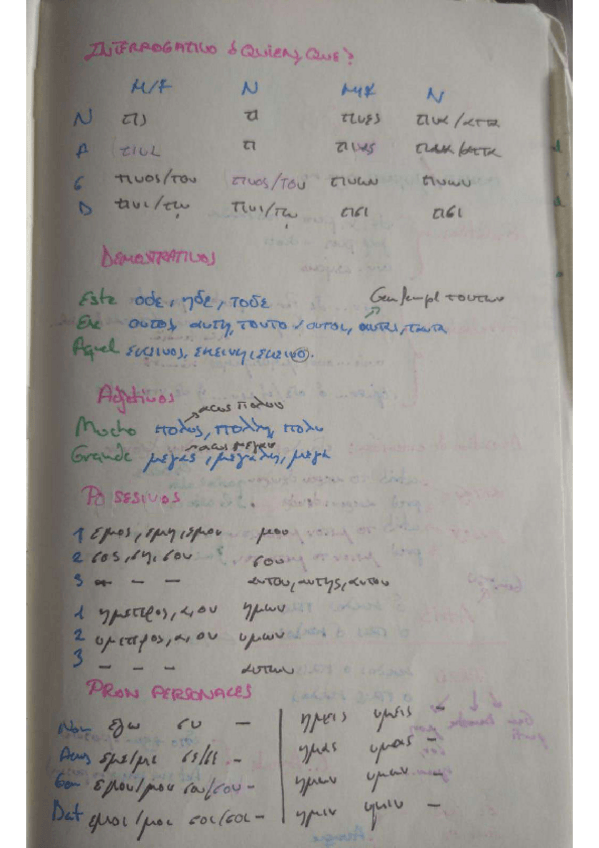 INTERROGATIVO ¿QUIEN, QUE?
M/F N M/F N
N τις τι τινες τινα/αττα
A τινα τι τινας τινα/αττα
G τινος/του τινος/του τινων τινων
D τινι/τῳ τινι/τῳ τισι τισι
DEMOSTRATIVOS
Este οδε, ηδε, τοδε Gen/empl τουτων
Ese ουτος, αυτη, τουτο / ουτοι, αυται, ταυτα
Aquel εκεινος, εκεινη, εκεινο.
Adjetivos
acus πολυν
Mucho πολυς, πολλη, πολυ
acus μεγαν
Grande μεγας, μεγαλη, μεγα
POSESIVOS
1 εμος, εμη, εμου μου
2 σος, ση, σου σου
3 - - - αυτου, αυτης, αυτου
1 ημετερος, α, ον ημων
2 υμετερος, α, ον υμων
3 - - - αυτων
PRON PERSONALES
Nom εγω συ - ημεις υμεις -
Acus εμε/με σε/σε - ημας υμας -
Gen εμου/μου σου/σου - ημων υμων -
Dat εμοι/μοι σοι/σοι - ημιν υμιν -